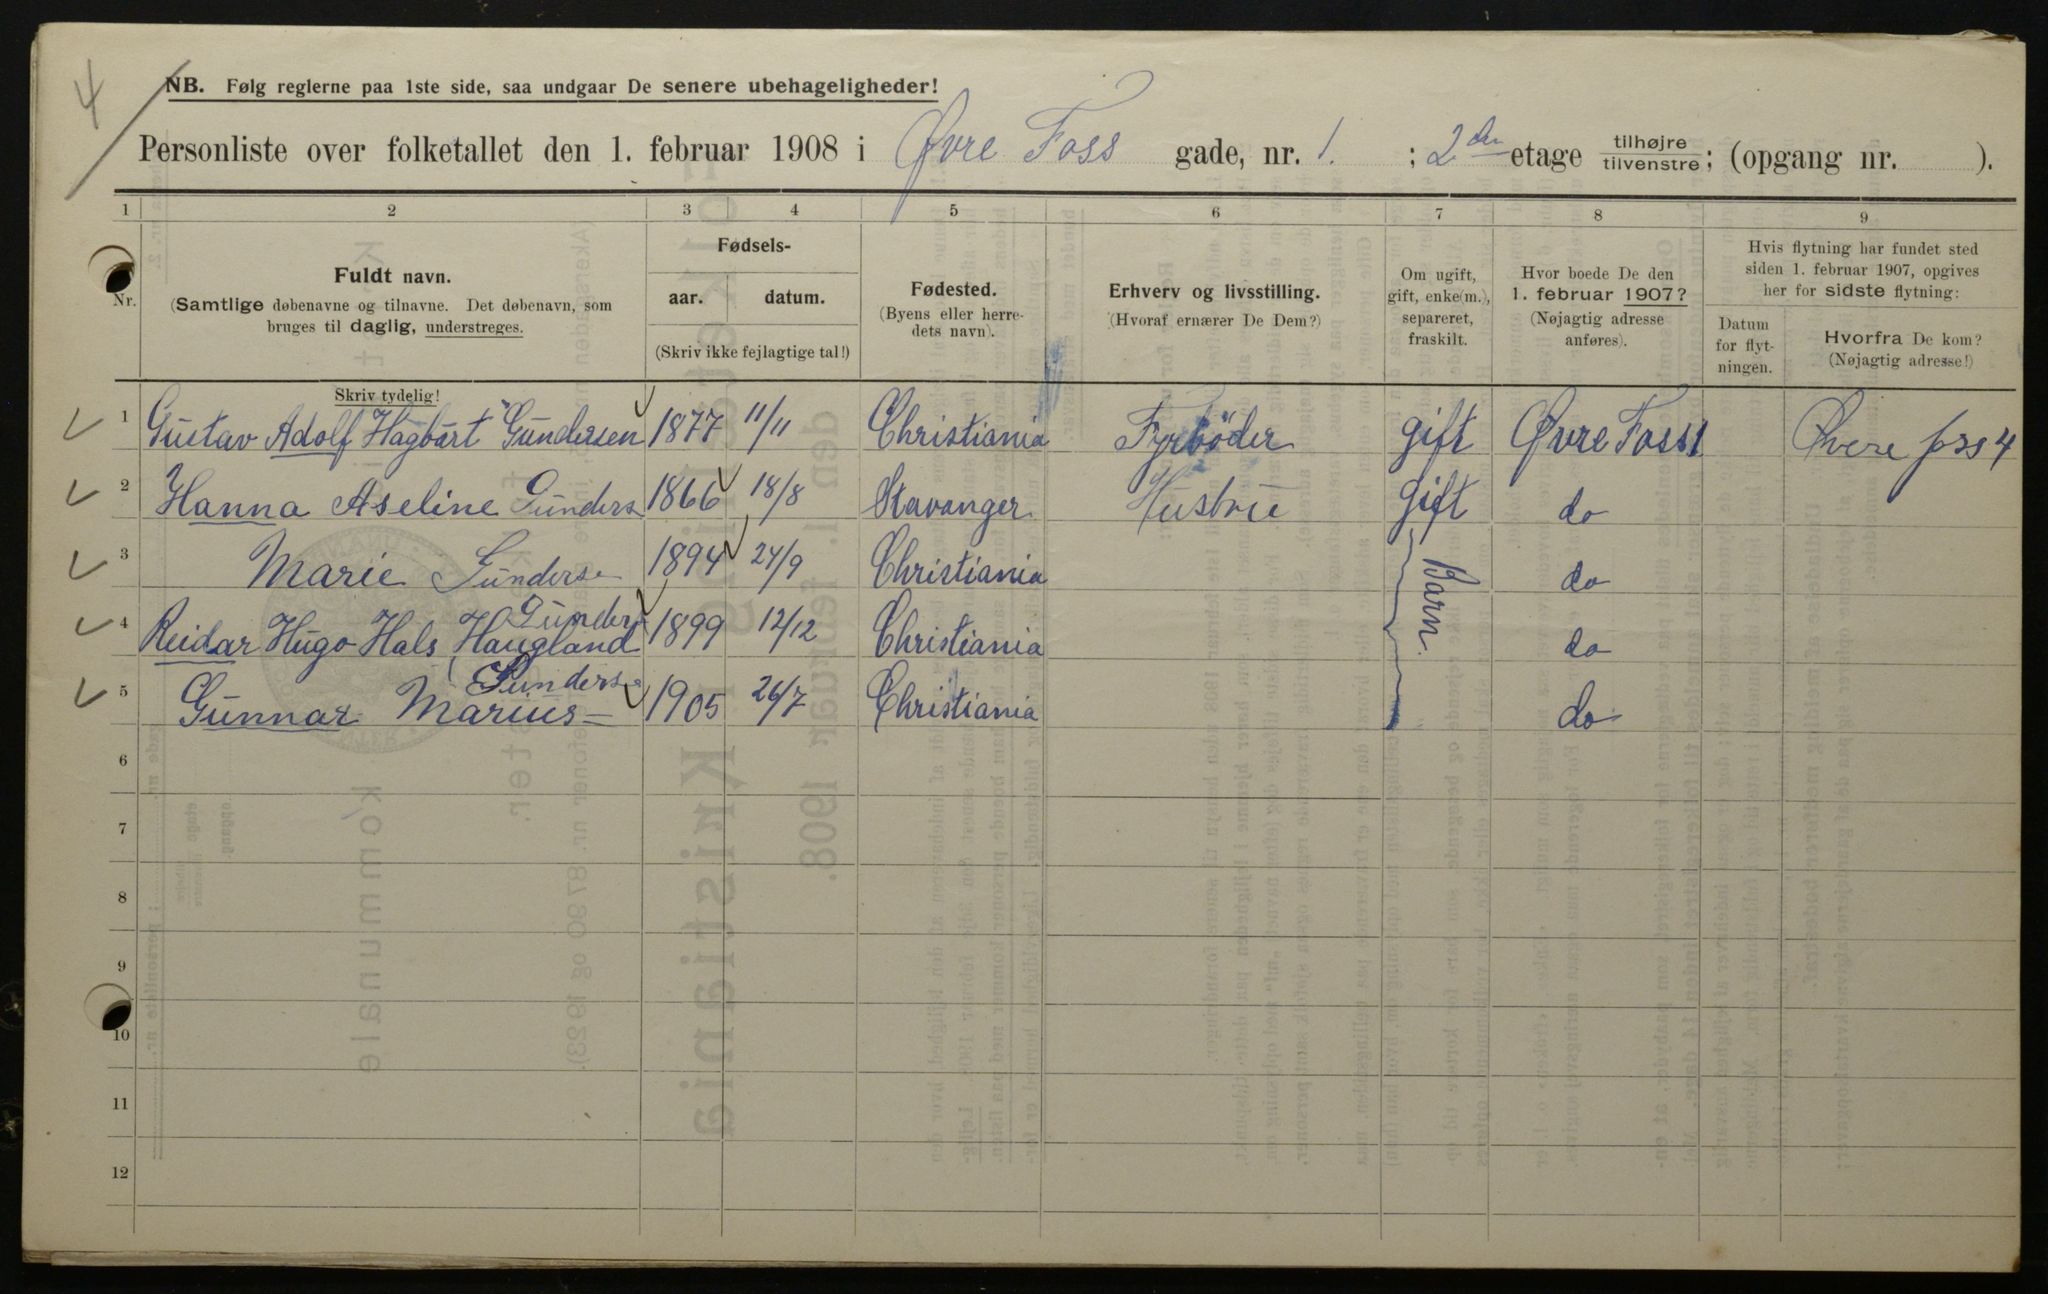 4
NB. Følg reglerne paa 1ste side, saa undgaar De senere ubehageligheder!
Personliste over folketallet den 1. februar 1908 i Øvre Foss gade, nr. 1. ; 2den etage tilhøjre tilvenstre; (opgang nr. ).
1 2 3 4 5 6 7 8 9
Nr.
Fuldt navn.
(Samtlige døbenavne og tilnavne. Det døbenavn, som
bruges til daglig, understreges.
Skriv tydelig!
Fødsels-
aar. datum.
(Skriv ikke fejlagtige tal!)
Fødested.
(Byens eller herre-
dets navn).
Erhverv og livsstilling.
(Hvoraf ernærer De Dem?)
Om ugift,
gift, enke(m.),
separeret,
fraskilt.
Hvor boede De den
1. februar 1907?
(Nøjagtig adresse
anføres).
Hvis flytning har fundet sted
siden 1. februar 1907, opgives
her for sidste flytning:
Datum
for flyt-
ningen.
Hvorfra De kom?
(Nøjagtig adresse!)
1 Gustav Adolf Hagbart Gundersen 1877 11/11 Christiania Fyrbøder gift Øvre Foss 1 Øvere foss 4
2 Hanna Aseline Gunders 1866 18/8 Stavanger Hustru gift do
3 Marie Gunderse 1894 24/9 Christiania Barn. do
4 Reidar Hugo Hals Haugland Gunder 1899 12/12 Christiania do
5 Gunnar Marius Gunders 1905 26/7 Christiania do
6
7
8
9
10
11
12